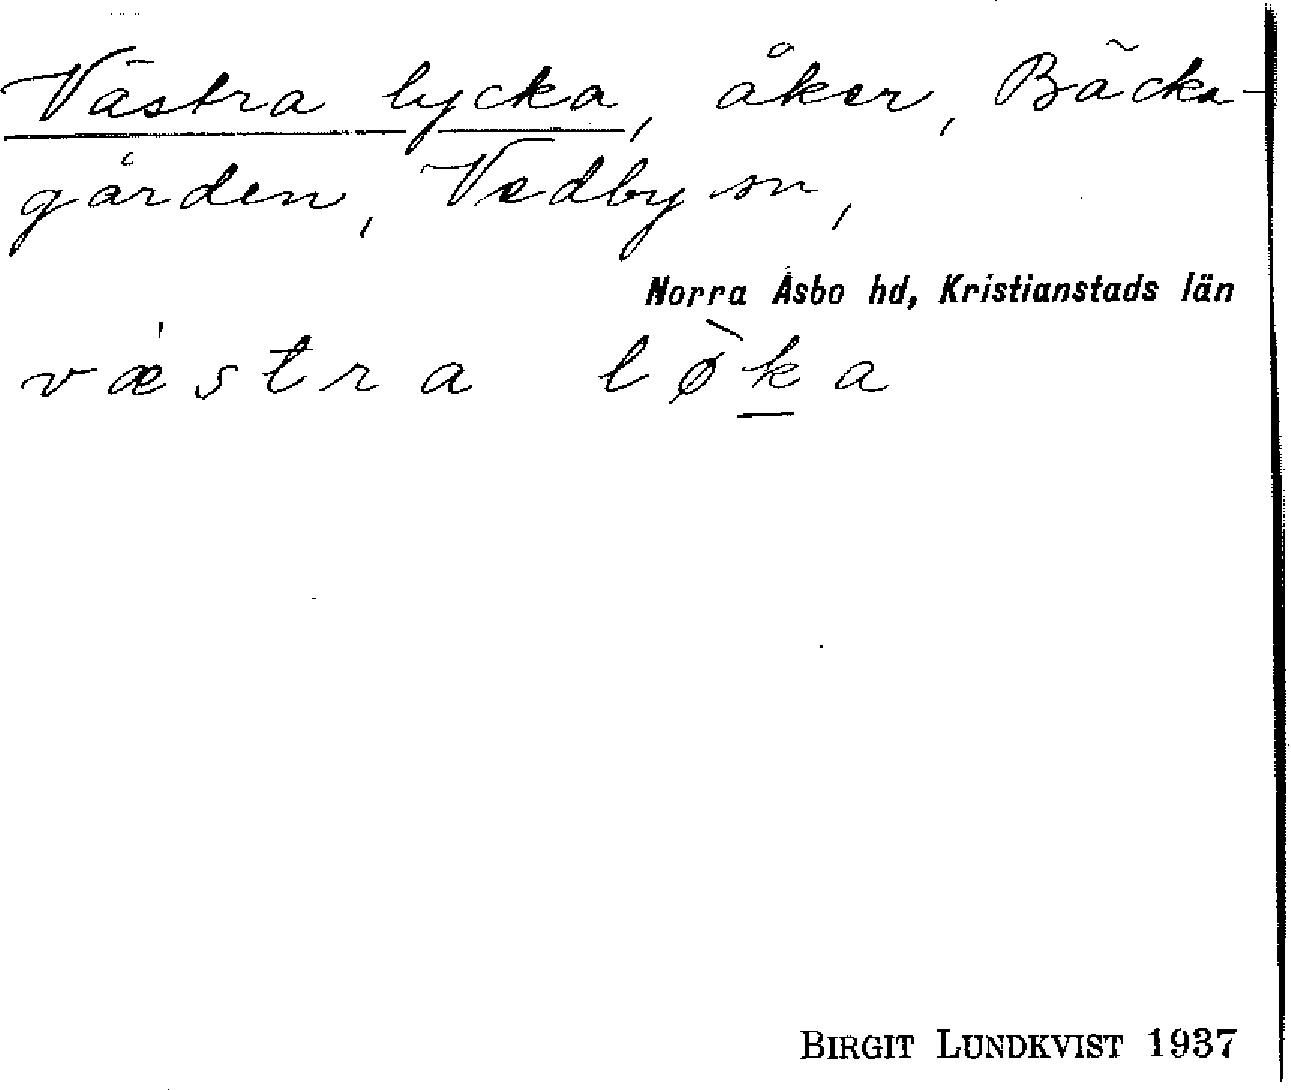 Västra lycka, åker, Bäcka-
gården, Vedby sn,
Norra Åsbo hd, Kristianstads län
væ̍stra lø̀ka
BIRGIT LUNDKVIST 1937